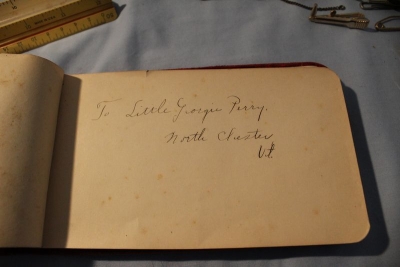 To Little Georgie Perry.
North Chester
Vt.